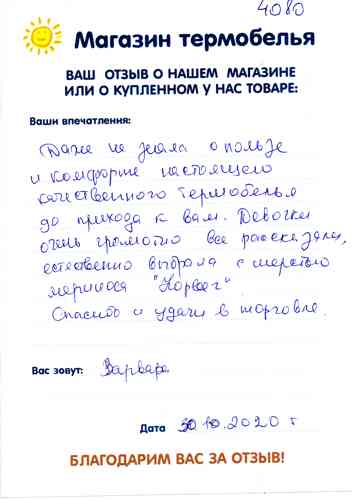 4080
Магазин термобелья
ВАШ ОТЗЫВ О НАШЕМ МАГАЗИНЕ
ИЛИ О КУПЛЕННОМ У НАС ТОВАРЕ:
Ваши впечатления:
Даже не знала о пользе
и комфорте настоящего
качественного термобелья
до прихода к вам. Девочки
очень громотно все рассказали,
естественно выбрала с шерстью
мериноса "Норвег".
Спасибо и удачи в торговле.
Вас зовут: Варвара
Дата 30.10.2020 г
БЛАГОДАРИМ ВАС ЗА ОТЗЫВ!